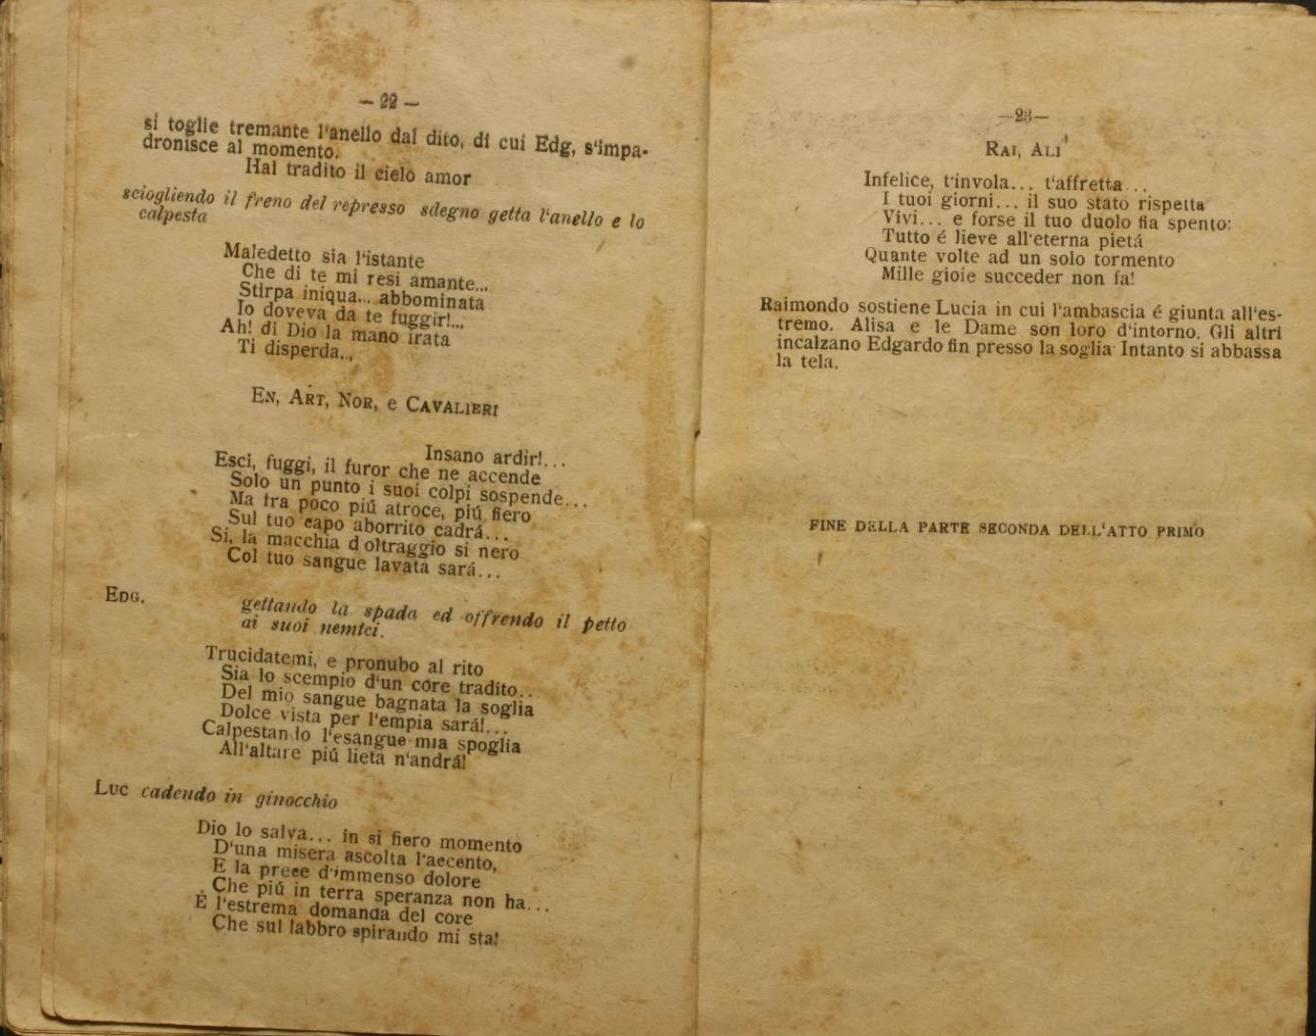 — 22 —
si toglie tremante l'anello dal dito, di cui Edg, s'impa-
dronisce al momento.
Hai tradito il cielo amor
sciogliendo il freno del represso sdegno getta l'anello e lo
calpesta
Maledetto sia l'istante
Che di te mi resi amante...
Stirpa iniqua... abbominata
Io doveva da te fuggir!...
Ah! di Dio la mano irata
Ti disperda..,
EN, ART, NOR, e CAVALIERI
Insano ardir!...
Esci, fuggi, il furor che ne accende
Solo un punto i suoi colpi sospende...
Ma tra poco piú atroce, piú fiero
Sul tuo capo aborrito cadrá...
Si, la macchia d oltraggio si nero
Col tuo sangue lavata sará...
EDG.
gettando la spada ed offrendo il petto
ai suoi nemtci.
Trucidatemi, e pronubo al rito
Sia lo scempio d'un core tradito..
Del mio sangue bagnata la soglia
Dolce vista per l'empia sará!...
Calpestan lo l'esangue mia spoglia
All'altare piú lieta n'andrá!
LUC cadendo in ginocchio
Dio lo salva... in si fiero momento
D'una misera ascolta l'aecento,
E la preee d'immenso dolore
Che piú in terra speranza non ha...
É l'estrema domanda del core
Che sul labbro spirando mi sta!
—23—
RAI, ALI
Infelice, t'invola... t'affretta...
I tuoi giorni... il suo stato rispetta
Vivi... e forse il tuo duolo fia spento:
Tutto é lieve all'eterna pietá
Quante volte ad un solo tormento
Mille gioie succeder non fa!
Raimondo sostiene Lucia in cui l'ambascia é giunta all'es-
tremo. Alisa e le Dame son loro d'intorno. Gli altri
incalzano Edgardo fin presso la soglia Intanto si abbassa
la tela.
FINE DELLA PARTE SECONDA DELL'ATTO PRIMO